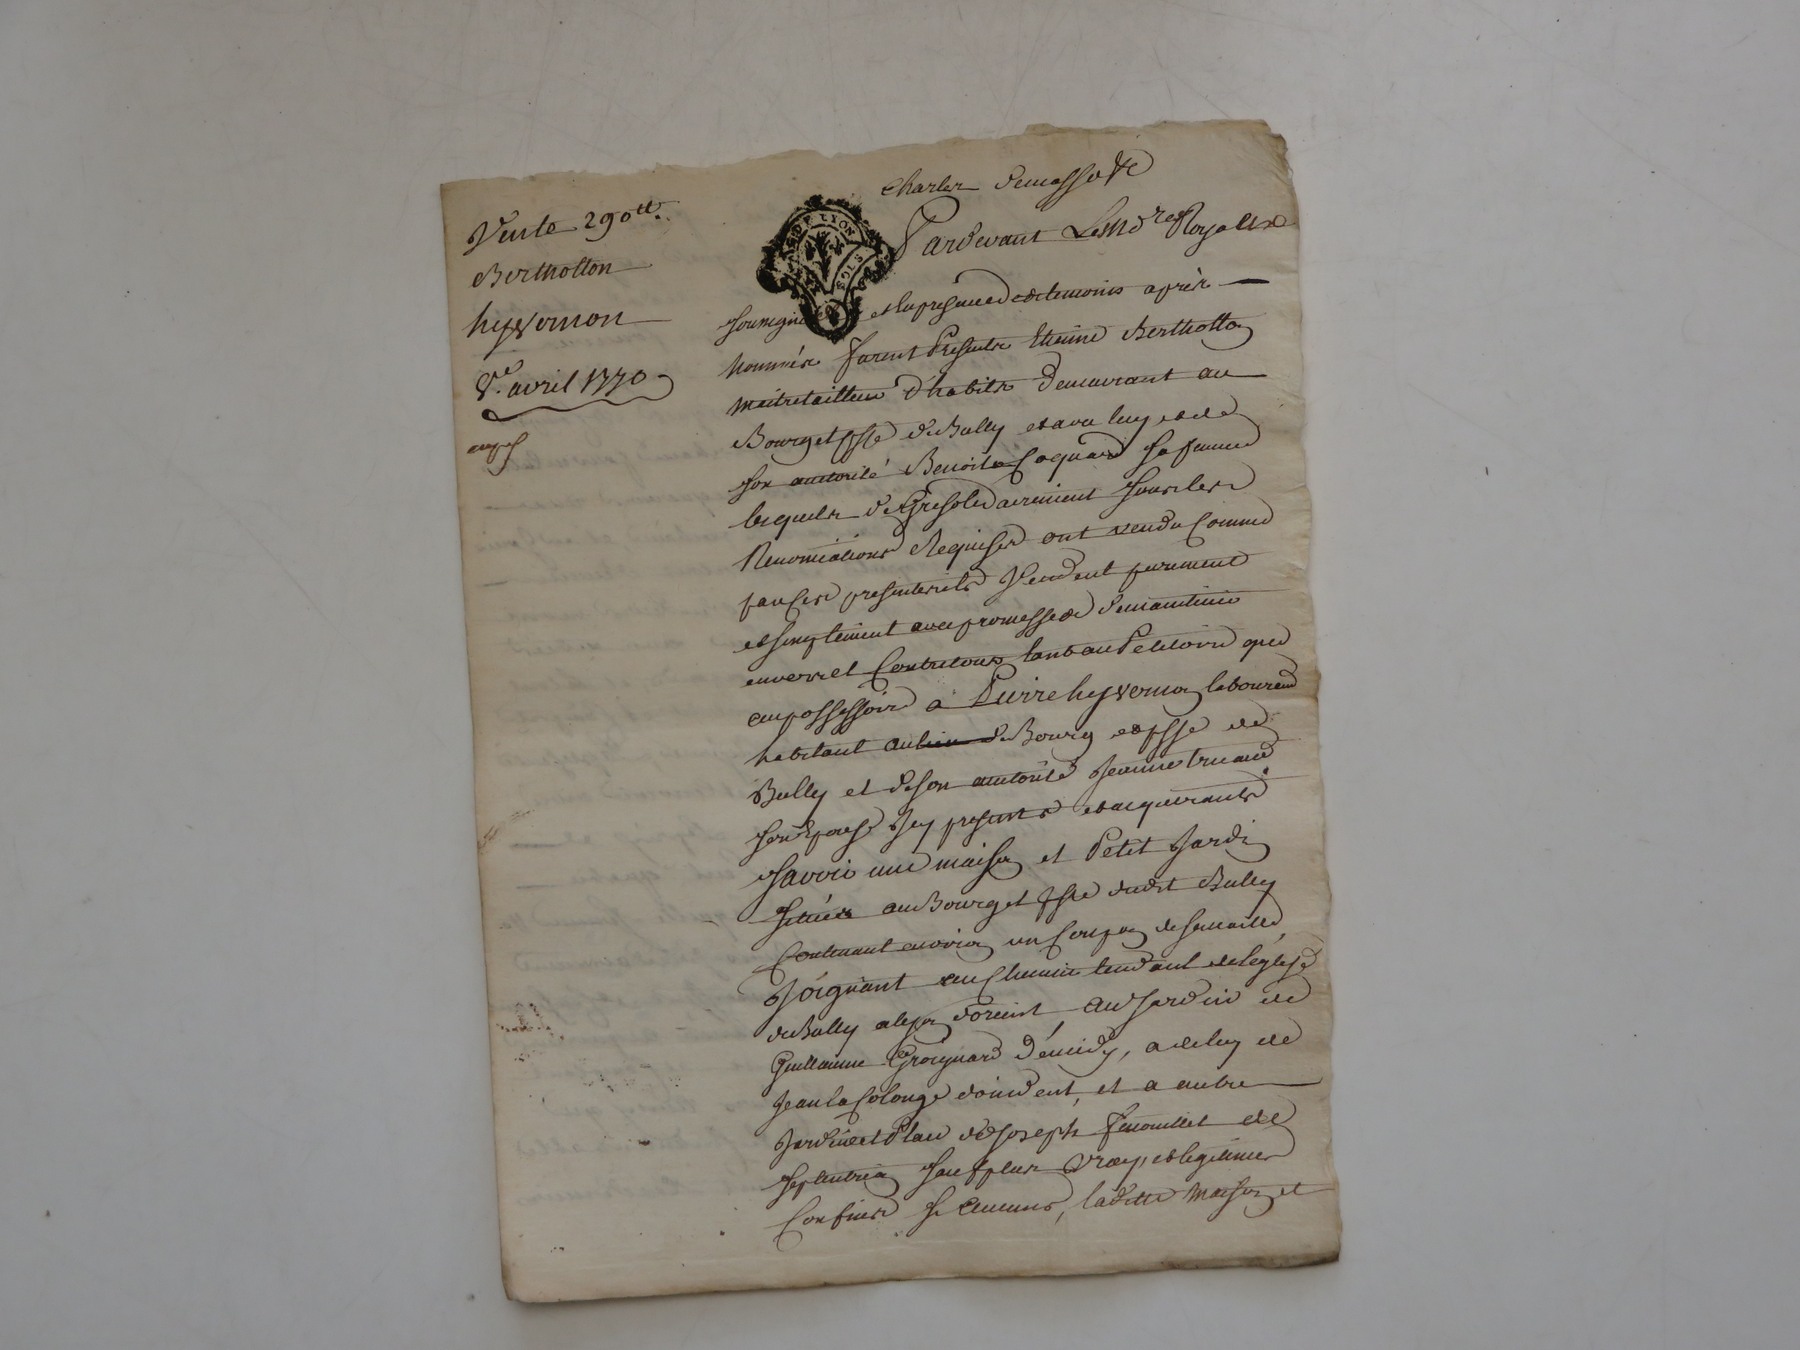 Vente 290tt.
Bertholton
hyvernon
8e. avril 1770
DE LYON
Charles demasso &c
Pardevant Les Nores Royaux
soussigné et en presence des temoins après
nommés furent Presents Etienne Bertholton
maitre tailleur d'habits demeurant au
Bourg et psse de Bully et avec luy et de
son autorité Benoite Coquard sa femme
lesquels de Gré solidairement sous les
Renonciations Requises ont vendu Comme
par Ces presentes ils Vendent purement
et simplement avec promesse de maintenir
envers et Contre tous tant au Petitoire que
au possessoire à Pierre hyvernon laboureur
habitant au Bourg et psse de
Bully et de son autorité Jeanne
son Epouse Icy presents et acquerants
Savoir une maison et Petit Jardin
Situés au Bourg et psse dudit Bully
Contenant environ un Coupon de semaille,
Joignant au Chemin tendant de leglise
de Bully a d'orient, au Jardin de
Guillaume Groignard de midy, a Celuy de
Jean la Colonge d'occident, et a autre
Jardin et Place de Joseph fenouillet de
septentrion sauf plus vrays et legitimes
Confins si aucuns, laditte Maison et